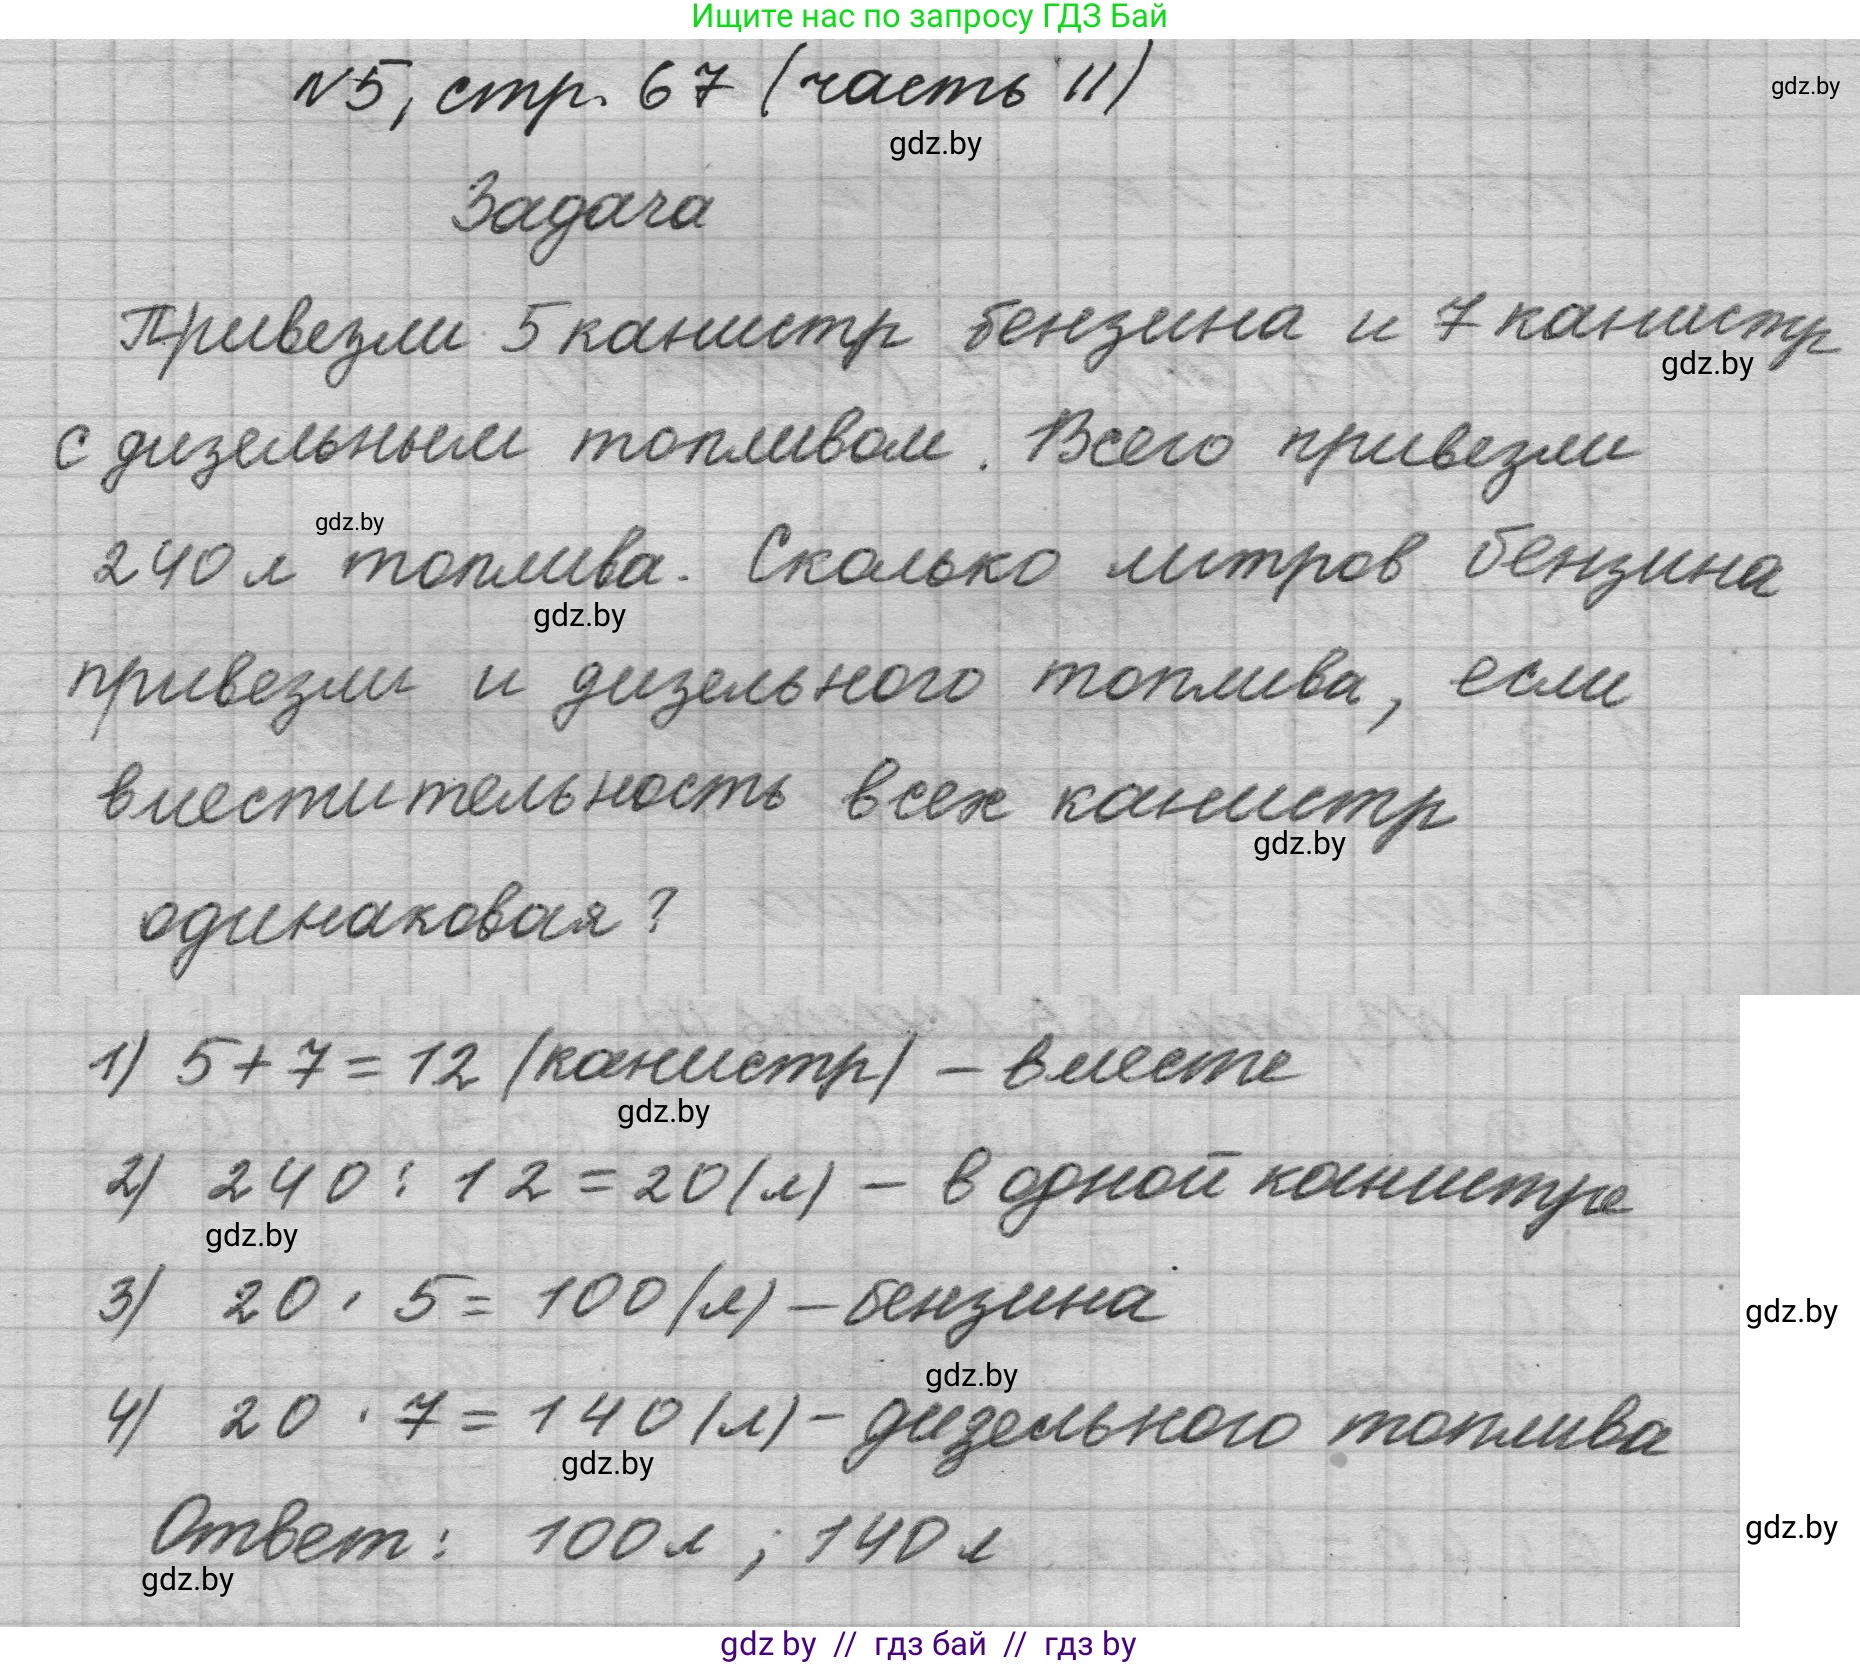 Ищите нас по запросу ГДЗ Бай
N5, стр. 67 (часть II)
gdz.by
gdz.by
Задача
Привезли 5 канистр бензина и 7 канистр
gdz.by
с дизельным топливом. Всего привезли
gdz.by
240 л топлива. Сколько литров бензина
gdz.by
привезли и дизельного топлива, если
вместительность всех канистр
gdz.by
одинаковая?
1) 5+7=12 (канистр) – вместе
gdz.by
2) 240 : 12 = 20 (л) – в одной канистре
gdz.by
3) 20 · 5 = 100 (л) – бензина
gdz.by
gdz.by
4) 20 · 7 = 140 (л) – дизельного топлива
gdz.by
Ответ: 100 л ; 140 л
gdz.by
gdz.by
gdz by // гдз бай // гдз by